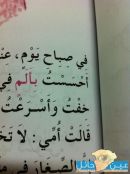 في صباح يَوْمٍ، عَنْـ
أَحْسَسْتُ بِأَلَمٍ في
خِفْتُ وَأَسْرَعْتُ
قَالَتْ أُمِّي: لا تَخَـ
الصِّغَارِ